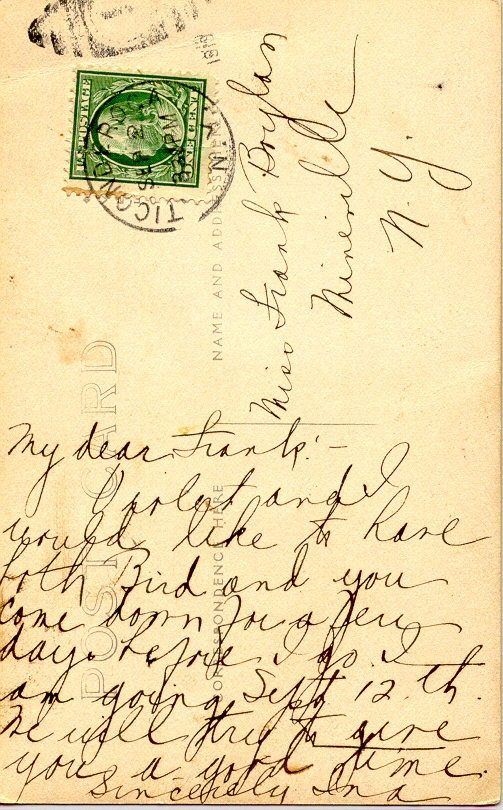 U.S. POSTAGE
TICONDEROGA
N.Y.
POST CARD
NAME AND ADDRESS HERE
CORRESPONDENCE HERE
Miss Frank Boylan
Mineville
N. Y.
My dear Frank:-
Violet and I
would like to have
both Bird and you
come down for a few
days before I go. I
am going Sept 12 th.
We will try to give
you a good time.
Sincerely Ina